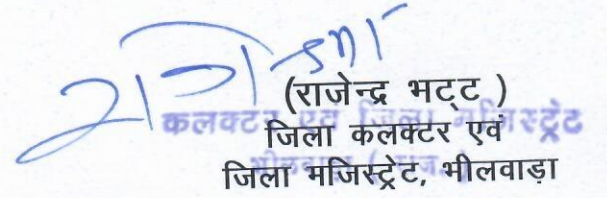 (राजेन्द्र भट्ट )
कलक्टर एवं जिला मजिस्ट्रेट
जिला कलक्टर एवं
जिला मजिस्ट्रेट, भीलवाड़ा